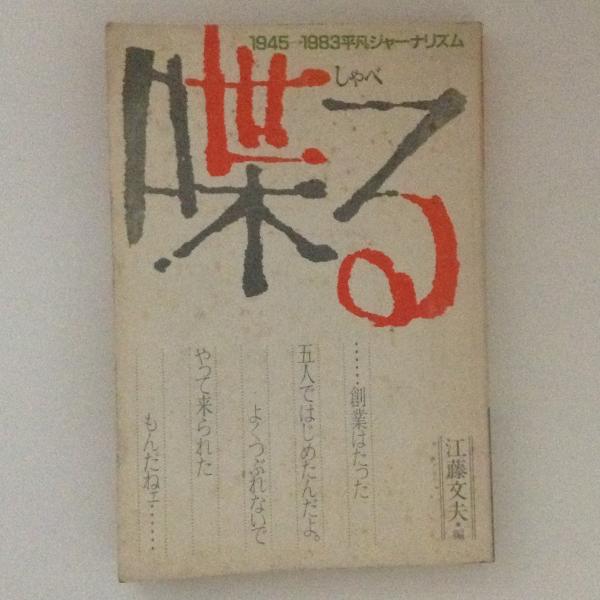 1945–1983平凡ジャーナリズム
しゃべ
喋る
……創業はたった
五人ではじめたんだよ。
よくつぶれないで
やって来られた
もんだねェ……
江藤文夫・編